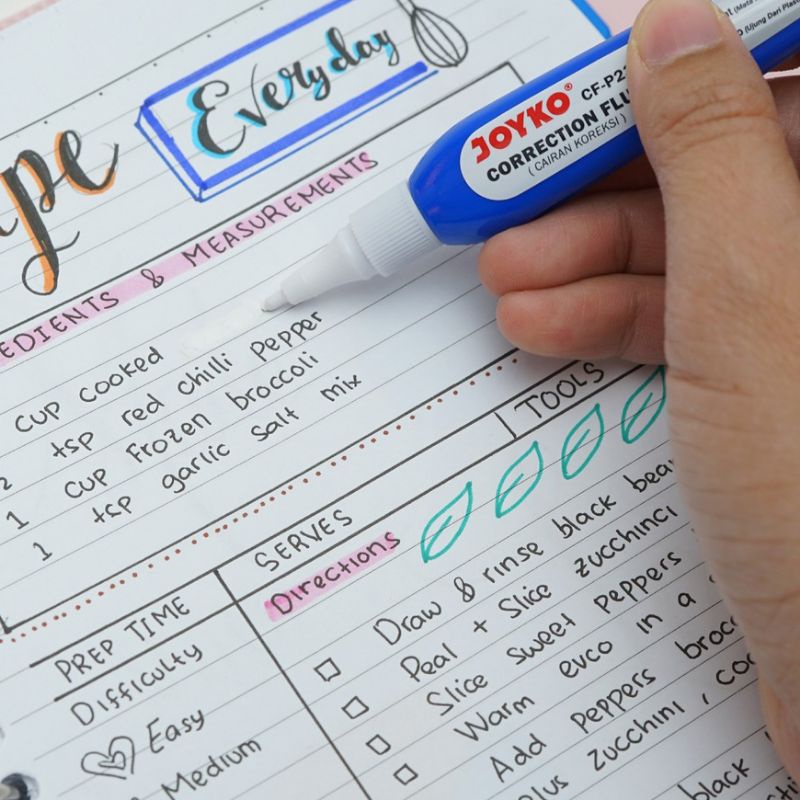 Everyday
JOYKO®
CORRECTION FLU
( CAIRAN KOREKSI )
EDIENTS & MEASUREMENTS
cup cooked
tsp red chilli pepper
1 cup frozen broccoli
1 tsp garlic salt mix
TOOLS
SERVES
Directions
Draw & rinse black bea
Peal + Slice zucchinci
Slice sweet peppers
Warm evco in a
Add peppers brocc
plus zucchini , co
black
PREP TIME
Difficulty
Easy
Medium